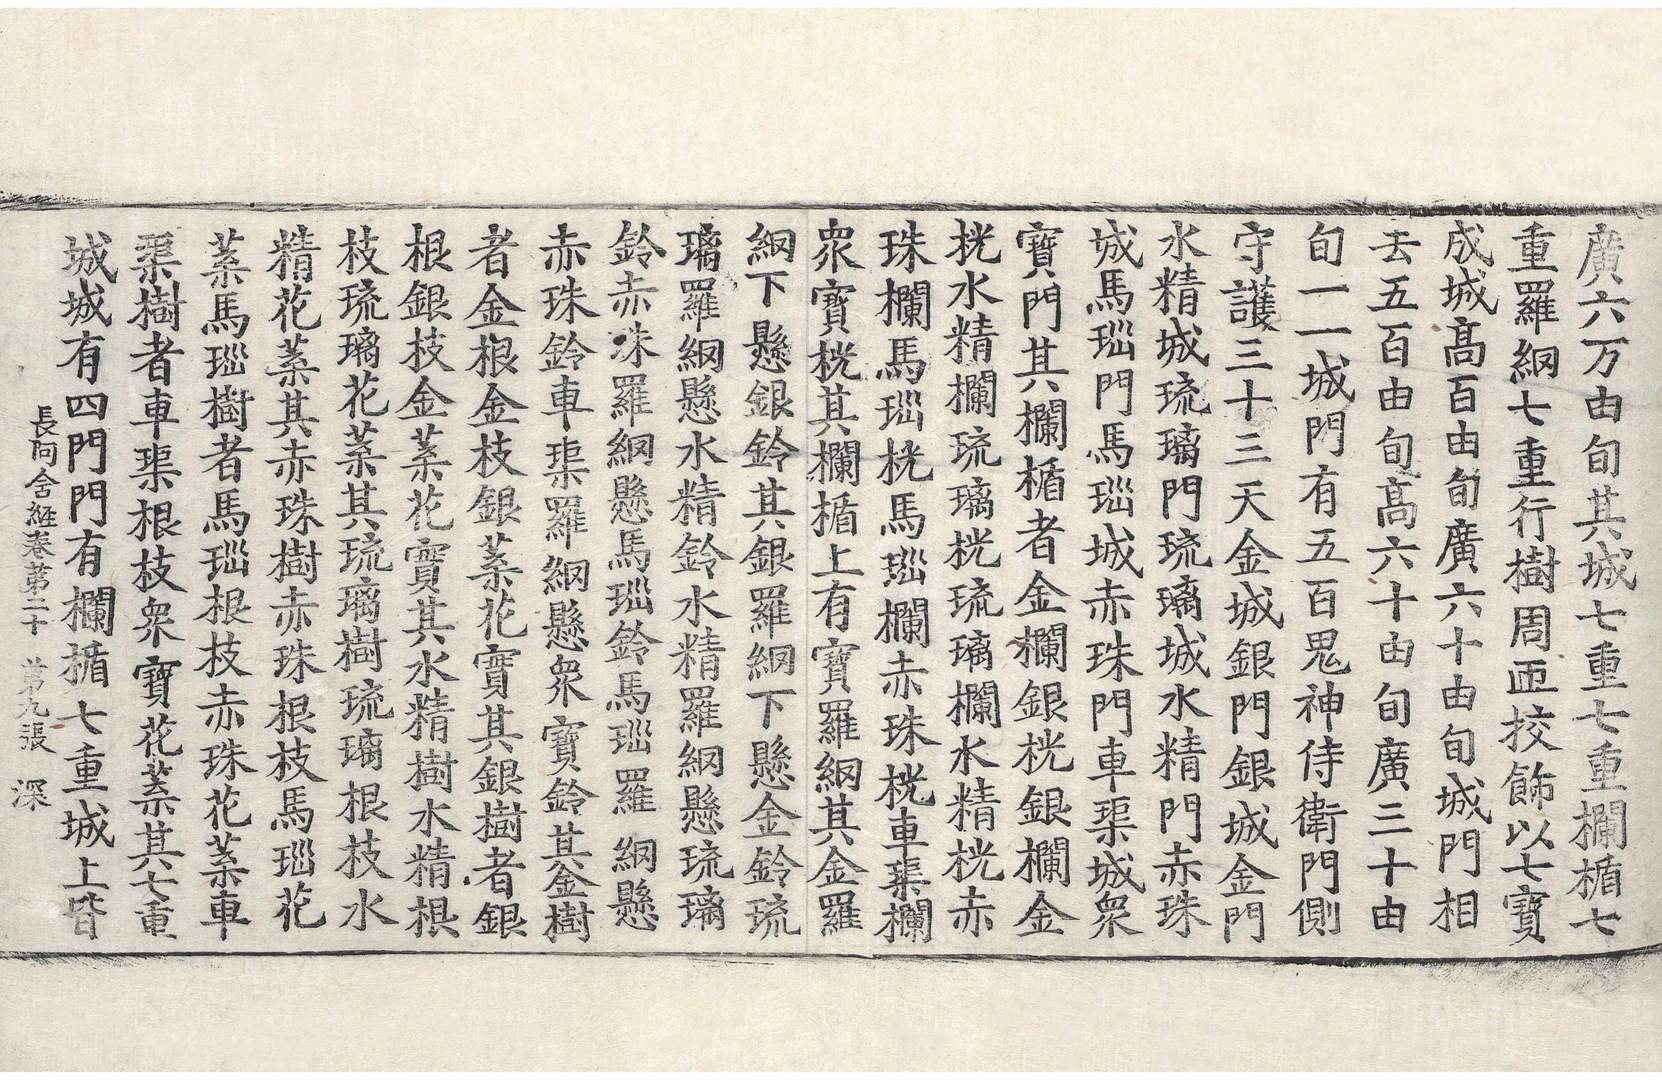 廣六万由旬其城七重七重欄楯七
重羅網七重行樹周匝挍飾以七寶
成城高百由旬廣六十由旬城門相
去五百由旬高六十由旬廣三十由
旬一一城門有五百鬼神侍衛門側
守護三十三天金城銀門銀城金門
水精城琉璃門琉璃城水精門赤珠
城馬瑙門馬瑙城赤珠門車渠城衆
寶門其欄楯者金欄銀桄銀欄金
桄水精欄琉璃桄琉璃欄水精桄赤
珠欄馬瑙桄馬瑙欄赤珠桄車渠欄
衆寶桄其欄楯上有寶羅網其金羅
網下懸銀鈴其銀羅網下懸金鈴琉
璃羅網懸水精鈴水精羅網懸琉璃
鈴赤珠羅網懸馬瑙鈴馬瑙羅網懸
赤珠鈴車渠羅網懸衆寶鈴其金樹
者金根金枝銀葉花實其銀樹者銀
根銀枝金葉花實其水精樹水精根
枝琉璃花葉其琉璃樹琉璃根枝水
精花葉其赤珠樹赤珠根枝馬瑙花
葉馬瑙樹者馬瑙根枝赤珠花葉車
渠樹者車渠根枝衆寶花葉其七重
城城有四門門有欄楯七重城上皆
長阿含経卷第二十 第九張 深